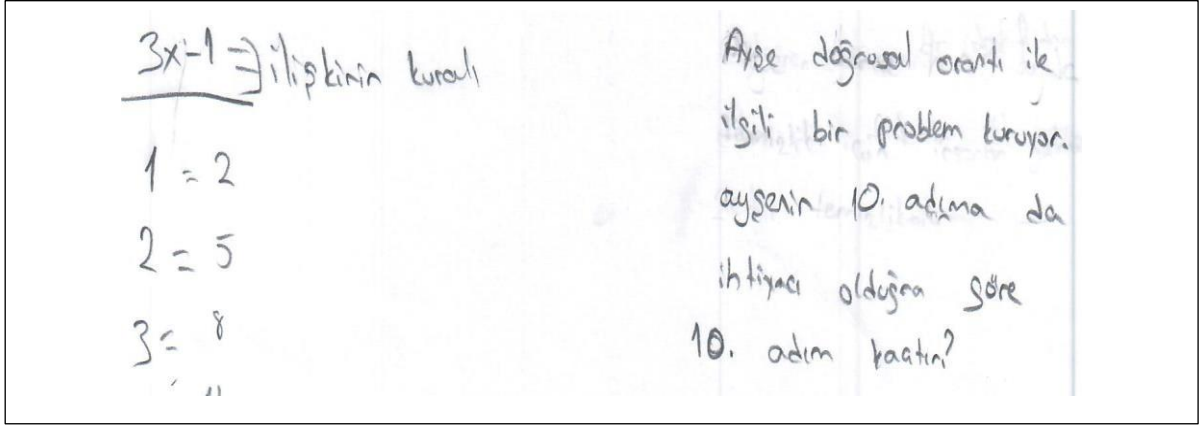 3x-1 => ilişkinin kuralı
1 = 2
2 = 5
3 = 8
Ayşe doğrusal orantı ile
ilgili bir problem kuruyor.
ayşenin 10. adıma da
ihtiyacı olduğna göre
10. adım kaçtır?